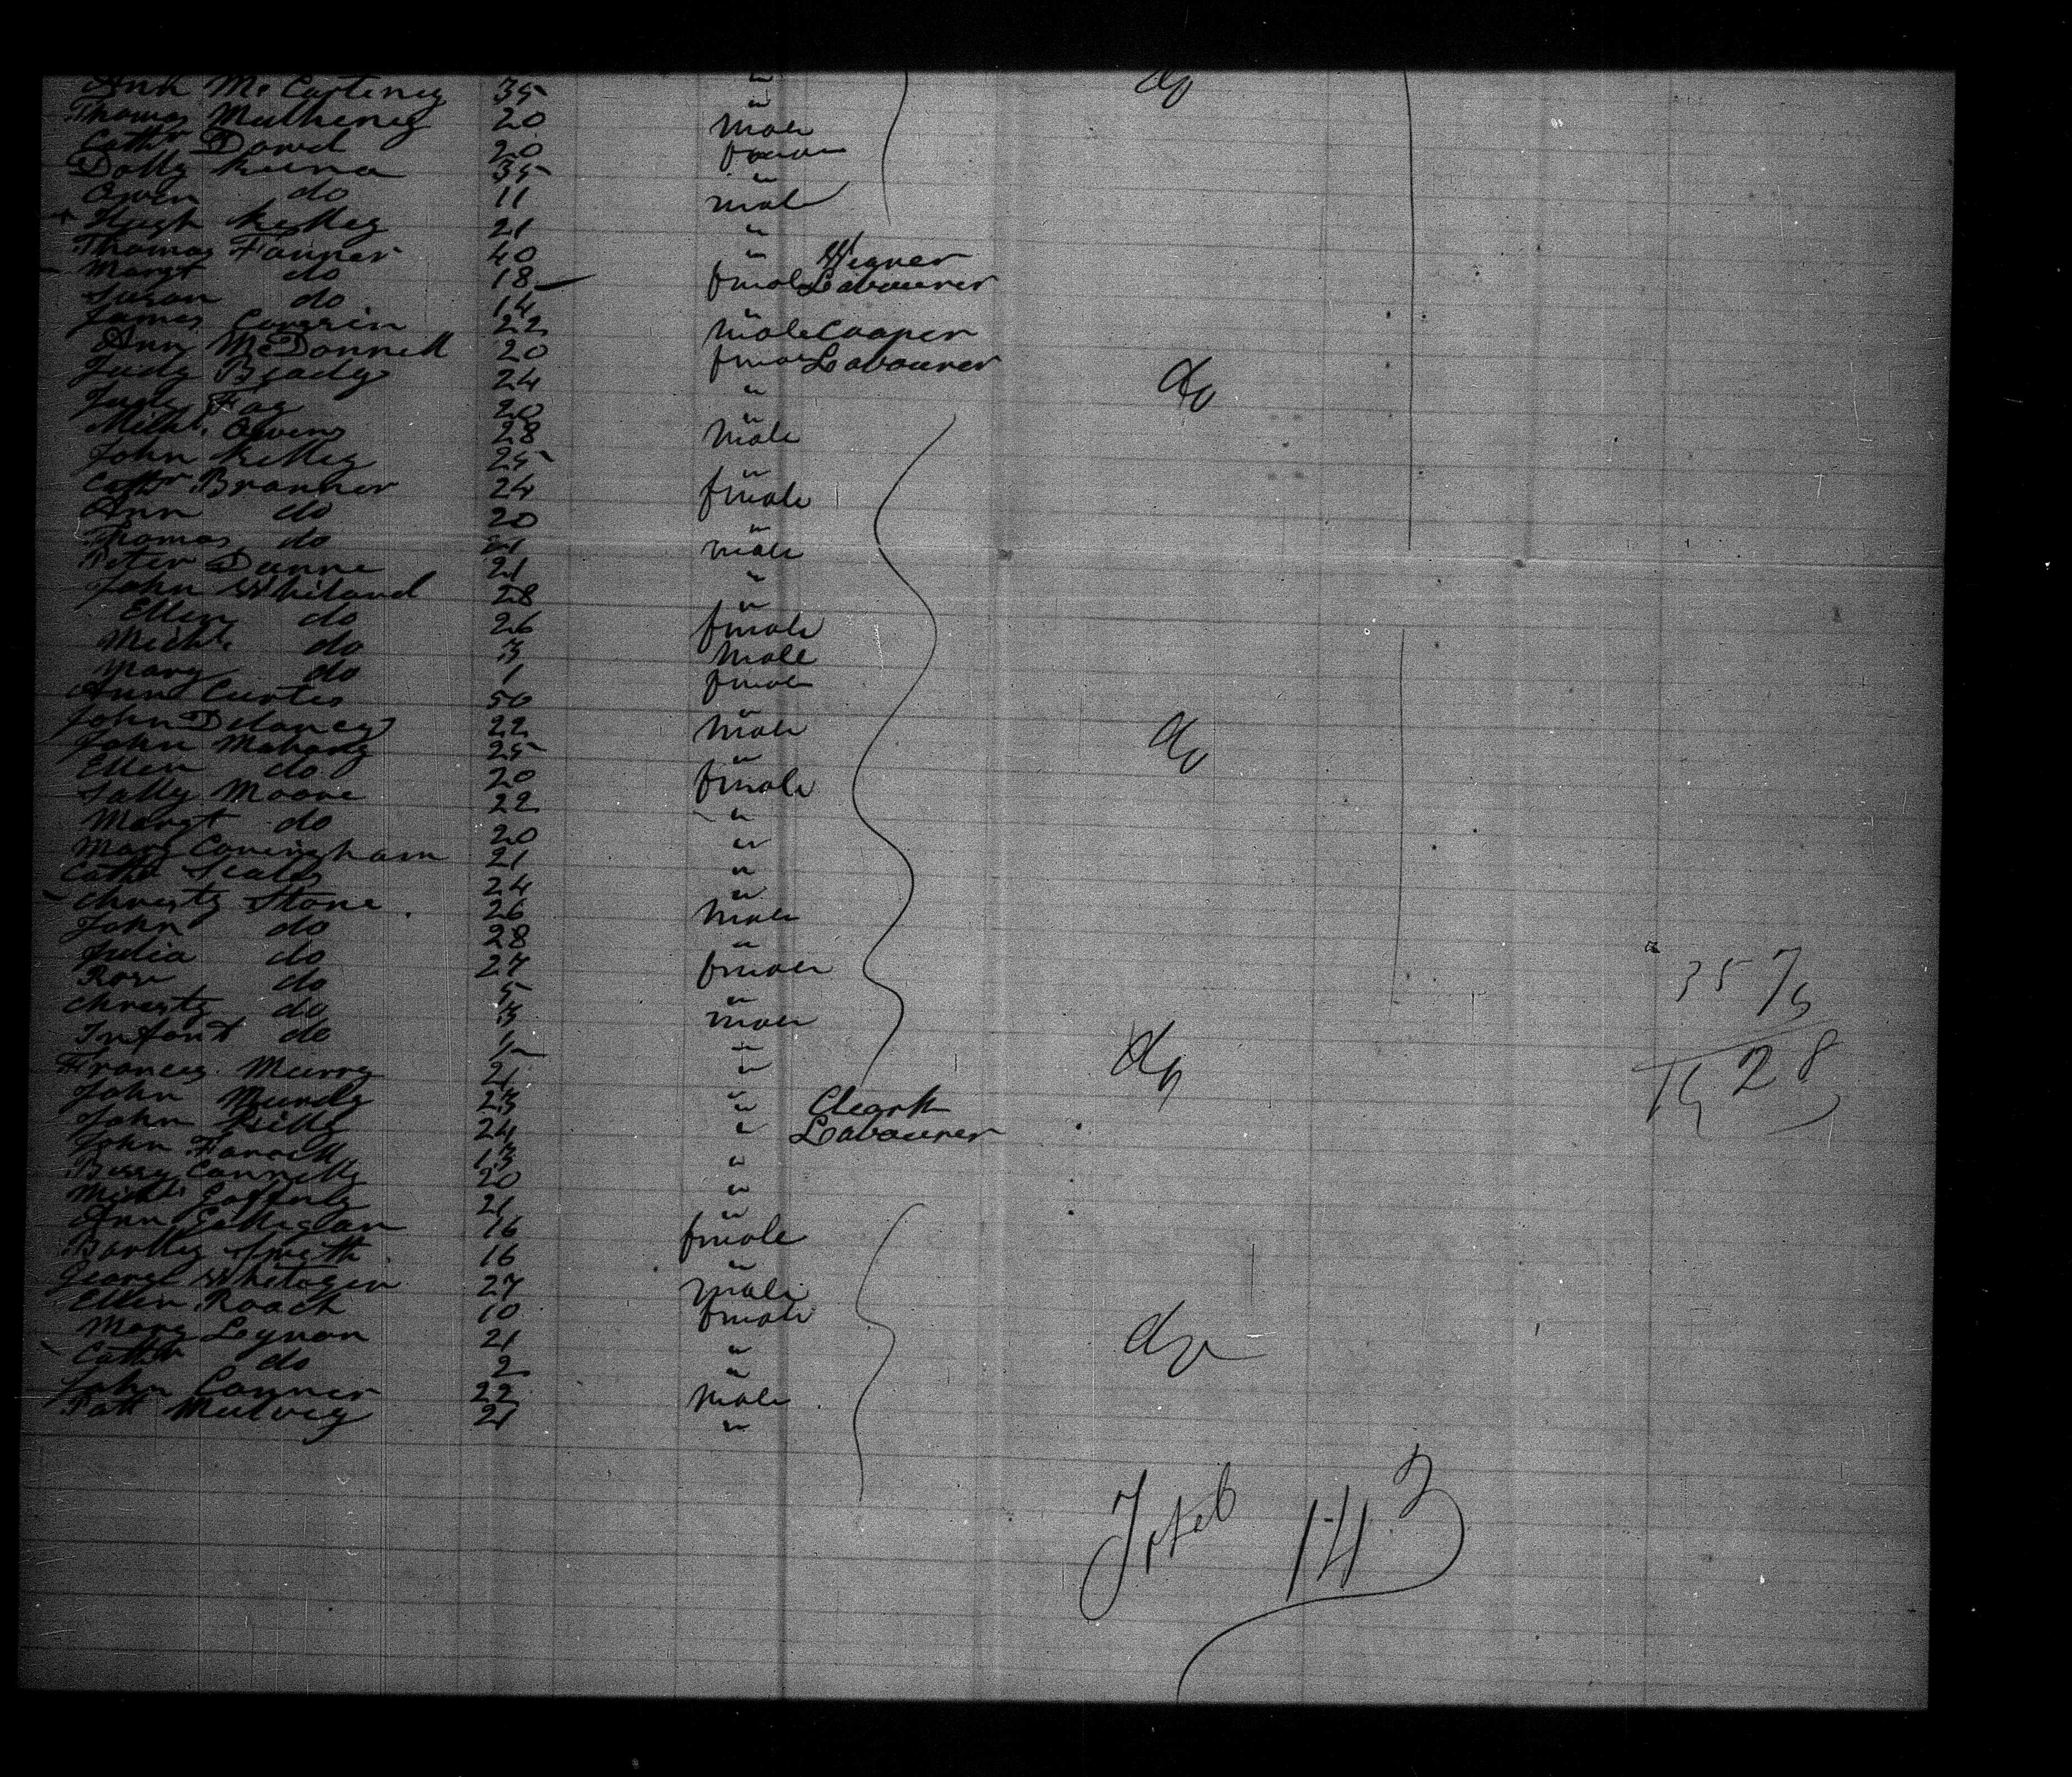 Ann McCarteney 35 "
Thomas Mulheney 20 male
Cathr Dowd 20 fmale
Dolly Keena 35 "
Owen do 11 male
+ Hugh Kelley 21 "
Thomas Fanner 40 " Wegner
Margt do 18 fmale Labourer
Susan do 14 "
James Corrin 22 male Cooper
Ann McDonnell 20 fmale Labourer
Judy Brady 24 " do
Judy Foy 20 "
Michl. Owens 28 male
John Kelley 25 "
Cathr Branner 24 fmale
Ann do 20 "
Thomas do 21 male
Peter Dunne 21 "
John Whiland 28 "
Ellen do 26 fmale
Michl. do 3 male
Mary do 1 fmale
Ann Curtes 50 "
John Delaney 22 male do
John Mahony 25 "
Ellen do 20 fmale
Sally Moore 22 "
Margt do 20 "
Mary Coningham 21 "
Cathr Scales 24 "
Chresty Stone 26 male
John do 28 "
Julia do 27 fmale
Rose do 5 "
Chresty do 3 male
Infant do 1 " do
Frances Murry 21 "
John Mundy 23 " Cleark
John Rielly 24 " Labourer
John Farrell 13 "
Bessy Connelly 20 "
Michl. Gaffney 21 "
Ann Gilleglan 16 fmale
Bartley Smeth 16 "
George Whitagen 27 male
Ellen Roach 10 fmale
Mary Leynon 21 " do
Cathr do 2 "
John Conner 22 male
Patt Mulvey 21 "
Total 143